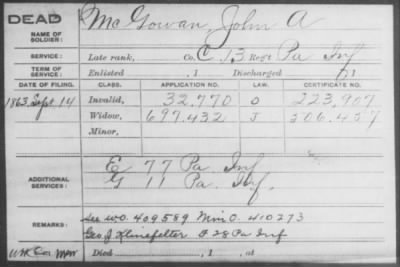 DEAD
NAME OF SOLDIER: McGowan, John A
SERVICE: Late rank, Co. C, 13 Reg't Pa Inf
TERM OF SERVICE: Enlisted , 1 Discharged , 1
DATE OF FILING. CLASS. APPLICATION NO. LAW. CERTIFICATE NO.
1863 Sept 14 Invalid, 32,770 O 223,907
Widow, 697,432 J 506,457
Minor,
ADDITIONAL SERVICES: E 77 Pa Inf
G 11 Pa Inf.
REMARKS: See WO. 409589 Min O. 410273
Geo J Klinefelter F 28 Pa Inf
Died , 1 , at